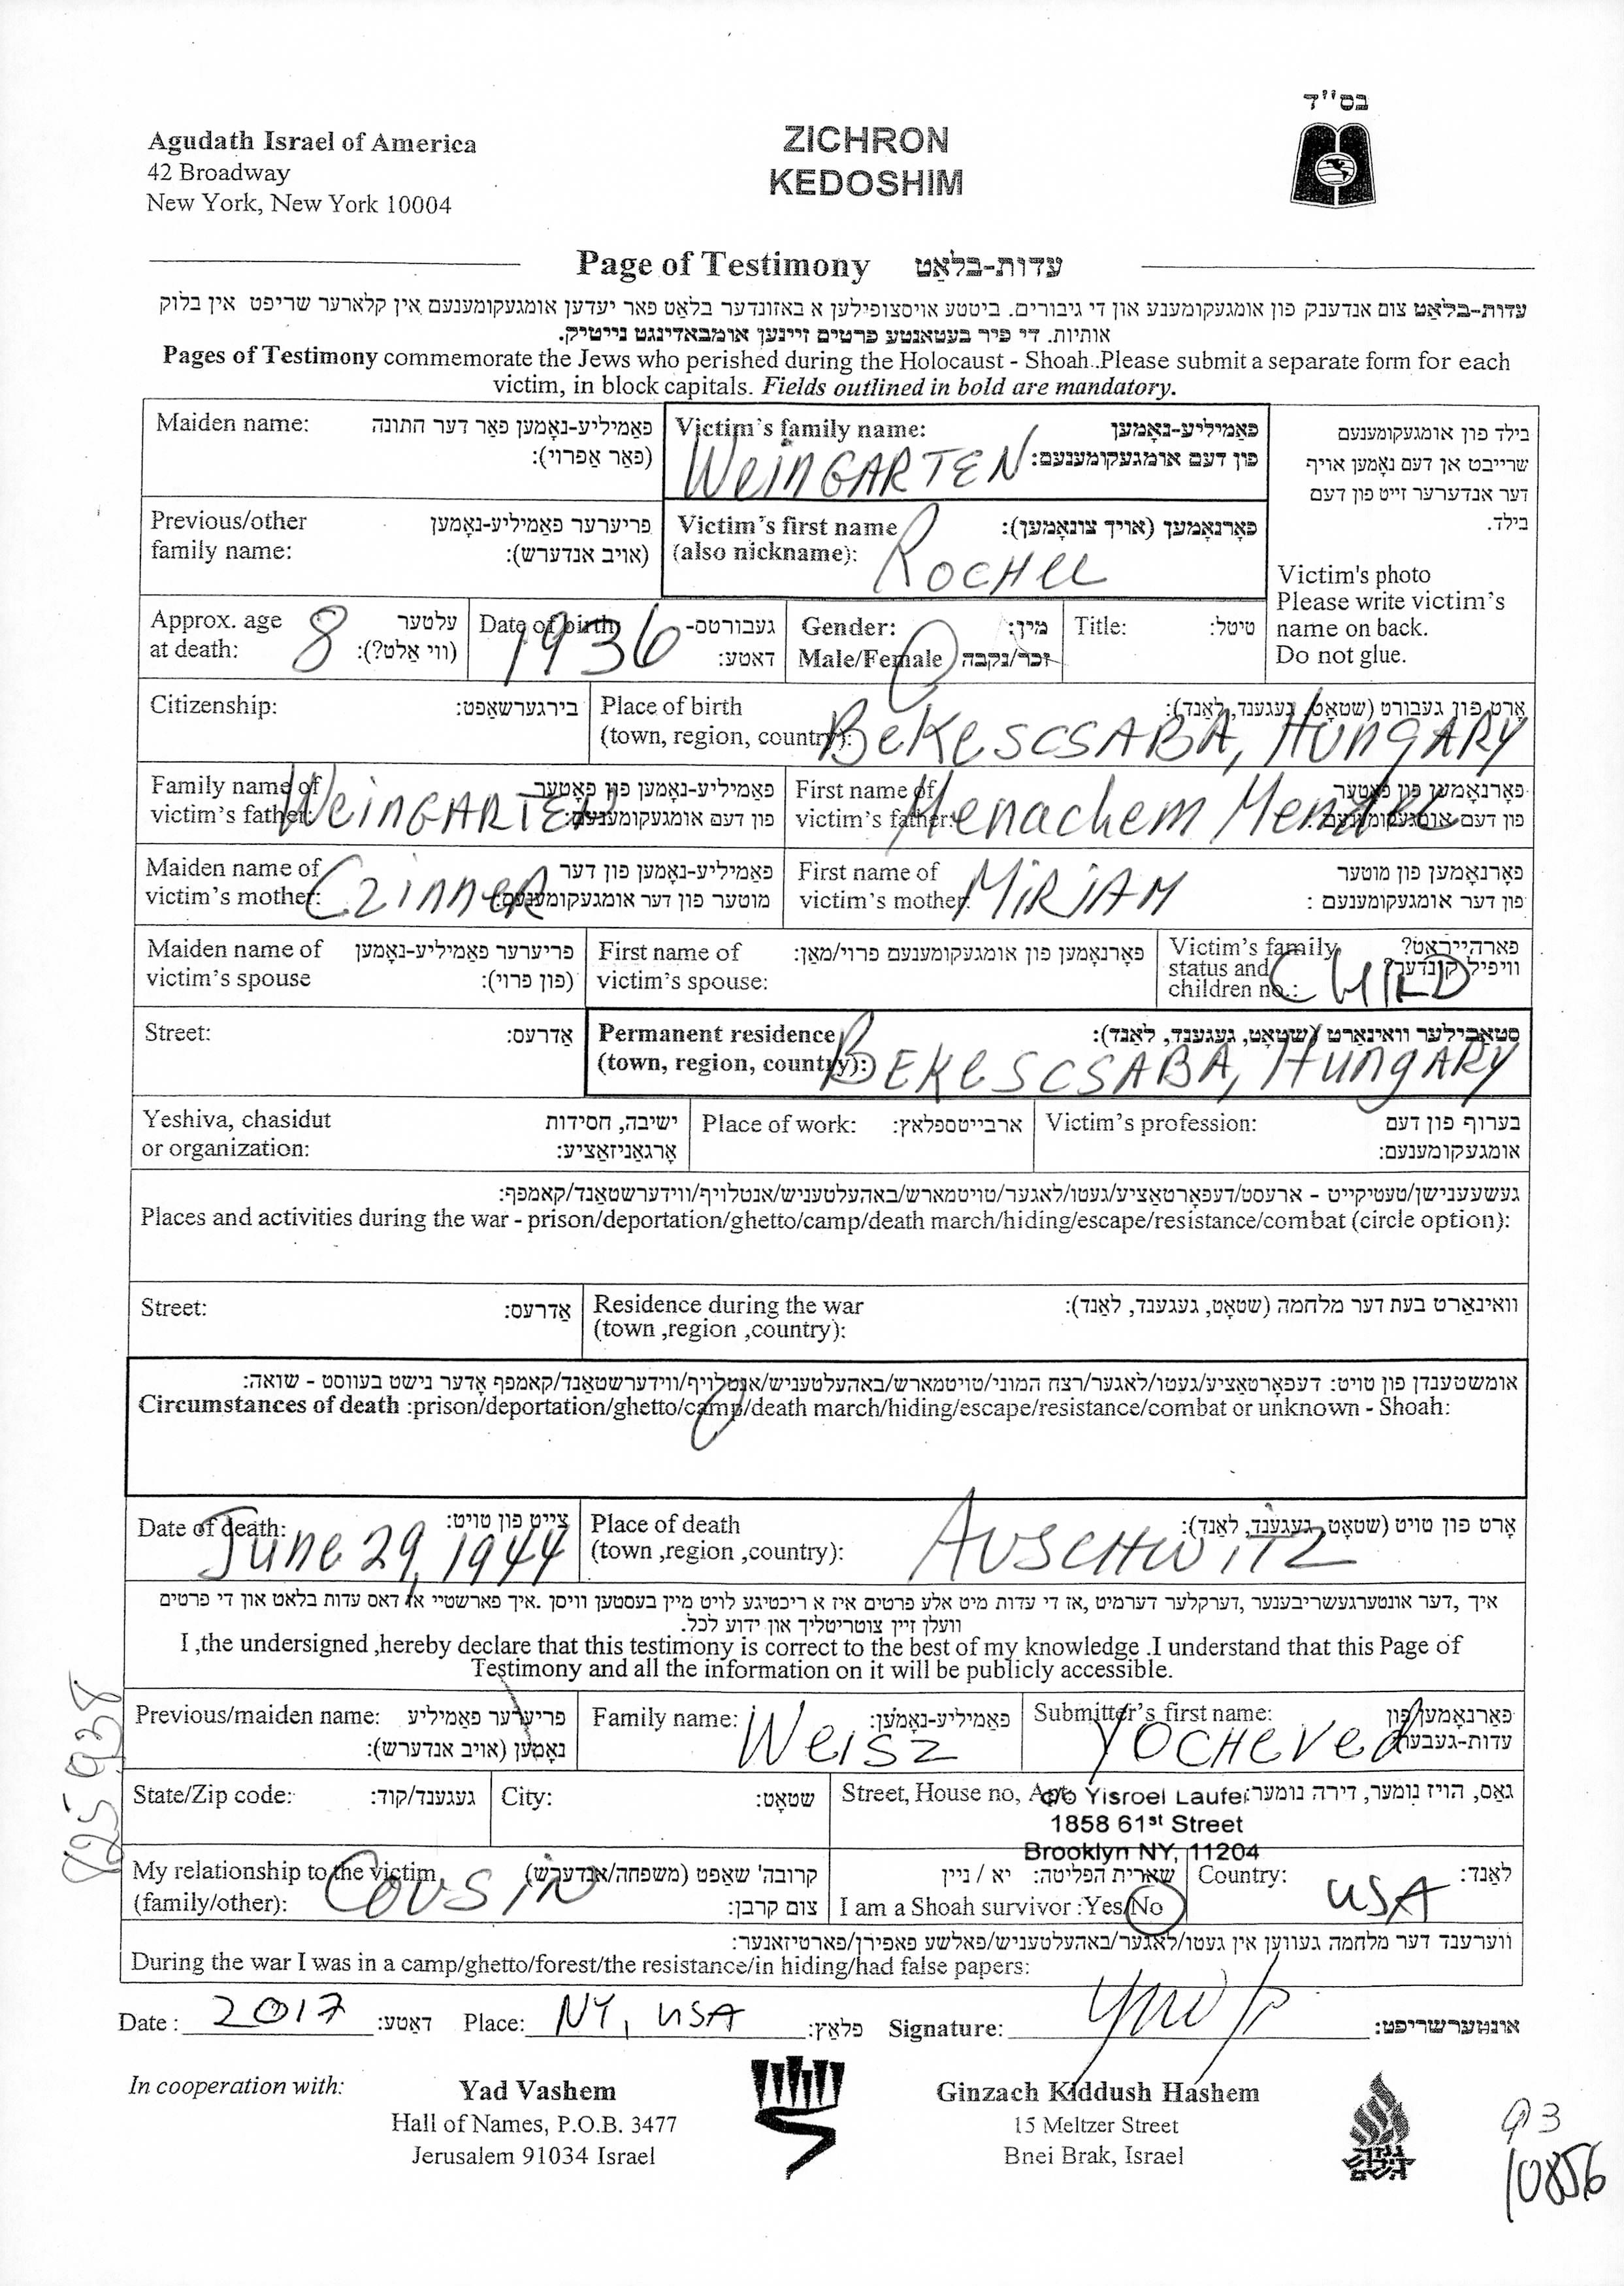 בס"ד
Agudath Israel of America
42 Broadway
New York, New York 10004
ZICHRON
KEDOSHIM
Page of Testimony עדות-בלאַט
עדות-בלאַט צום אנדענק פון אומגעקומענע און די גיבורים. ביטטע אויסצופילען א באזונדער בלאט פאר יעדען אומגעקומענעם אין קלארער שריפט אין בלוק
אותיות. די פיר בעטאנטע פרטים זיינען אומבאדינגט נייטיק.
Pages of Testimony commemorate the Jews who perished during the Holocaust - Shoah..Please submit a separate form for each
victim, in block capitals. Fields outlined in bold are mandatory.
Maiden name: פאַמיליע-נאָמען פאַר דער חתונה
(פאַר אַפרוי):
Victim's family name: פאַמיליע-נאָמען
פון דעם אומגעקומענעם:
WeinGARTEN
בילד פון אומגעקומענעם
שרייבט אן דעם נאָמען אויף
דער אנדערער זייט פון דעם
בילד.
Victim's photo
Please write victim's
name on back.
Do not glue.
Previous/other פריערער פאַמיליע-נאָמען
family name: (אויב אנדערש):
Victim's first name פאָרנאָמען (אויך צונאָמען):
(also nickname):
ROCHEL
Approx. age עלטער
at death: (ווי אלט?):
8
Date of birth געבורטס-
דאַטע:
1936
Gender: מין:
Male/Female זכר/נקבה
Title: טיטל:
Citizenship: בירגערשאַפט:
Place of birth אָרט פון געבורט (שטאָט, געגענד, לאַנד):
(town, region, country):
BeKeSCSABA, HungARY
Family name of פאַמיליע-נאָמען פון פאָטער
victim's father: פון דעם אומגעקומענעם:
WeinGARTEN
First name of פאָרנאָמען פון פאָטער
victim's father: פון דעם אומגעקומענעם:
Menachem Mendel
Maiden name of פאַמיליע-נאָמען פון דער
victim's mother: מוטער פון דער אומגעקומענעם:
CzinneR
First name of פאָרנאָמען פון מוטער
victim's mother: פון דער אומגעקומענעם :
MiRIAM
Maiden name of פריערער פאַמיליע-נאָמען
victim's spouse (פון פרוי):
First name of פאָרנאָמען פון אומגעקומענעם פרוי/מאַן:
victim's spouse:
Victim's family פארהייראַט?
status and וויפיל קינדער?
children no.:
CHILD
Street: אַדרעס:
Permanent residence סטאַבילער וואינאַרט (שטאָט, געגענד, לאַנד):
(town, region, country):
BEKeSCSABA, HungARY
Yeshiva, chasidut ישיבה, חסידות
or organization: אָרגאַניזאַציע:
Place of work: ארבייטספלאץ:
Victim's profession: בערוף פון דעם
אומגעקומענעם:
געשעענישן/טעטיקייט - ארעסט/דעפאָרטאַציע/געטו/לאגער/טויטמארש/באהעלטעניש/אנטלויף/ווידערשטאַנד/קאמפף:
Places and activities during the war - prison/deportation/ghetto/camp/death march/hiding/escape/resistance/combat (circle option):
Street: אַדרעס:
Residence during the war וואינאַרט בעת דער מלחמה (שטאָט, געגענד, לאַנד):
(town ,region ,country):
אומשטענדן פון טויט: דעפאָרטאַציע/געטו/לאגער/רצח המוני/טויטמארש/באהעלטעניש/אנטלויף/ווידערשטאַנד/קאמפף אָדער נישט בעווסט - שואה:
Circumstances of death :prison/deportation/ghetto/camp/death march/hiding/escape/resistance/combat or unknown - Shoah:
Date of death: צייט פון טויט:
June 29, 1944
Place of death אָרט פון טויט (שטאָט, געגענד, לאַנד):
(town ,region ,country):
AUSCHWITZ
איך ,דער אונטערגעשריבענער ,דערקלער דערמיט ,אז די עדות מיט אלע פרטים איז א ריכטיגע לויט מיין בעסטען וויסן .איך פארשטיי אז דאס עדות בלאט און די פרטים
וועלן זיין צוטריטליך און ידוע לכל.
I ,the undersigned ,hereby declare that this testimony is correct to the best of my knowledge .I understand that this Page of
Testimony and all the information on it will be publicly accessible.
Previous/maiden name: פריערער פאַמיליע
נאָמען (אויב אנדערש):
Family name: פאַמיליע-נאָמען:
Weisz
Submitter's first name: פאַרנאָמען פון
עדות-געבער
YOCHeVed
State/Zip code: געגענד/קוד:
City: שטאָט:
Street, House no, Apt. גאַס, הויז נומער, דירה נומער:
c/o Yisroel Laufer
1858 61st Street
Brooklyn NY, 11204
My relationship to the victim קרובה' שאַפט (משפחה/אנדערש)
(family/other): צום קרבן:
COUSIN
שארית הפליטה: יא / ניין
I am a Shoah survivor :Yes/No
Country: לאַנד:
USA
ווערענד דער מלחמה געווען אין געטו/לאגער/באהעלטעניש/פאלשע פאפירן/פארטיזאנער:
During the war I was in a camp/ghetto/forest/the resistance/in hiding/had false papers:
Date : 2017 דאַטע: Place: NY, USA פלאַץ: Signature: אונטערשריפט:
In cooperation with:
Yad Vashem
Hall of Names, P.O.B. 3477
Jerusalem 91034 Israel
Ginzach Kiddush Hashem
15 Meltzer Street
Bnei Brak, Israel
גנזך
קידוש
השם
93
10856
825938